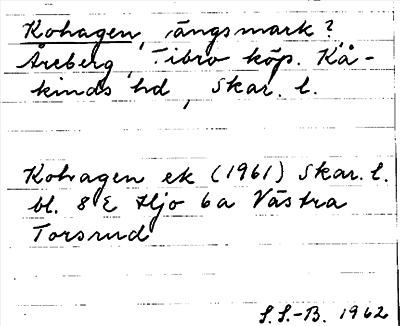 Kohagen, ängsmark?,
Åreberg, Tibro köp. Kå-
kinds hd, Skar. l.
Kohagen ek (1961) Skar. l.
bl. 8 E Hjo 6a Västra
Torsrud
S. S.-B. 1962